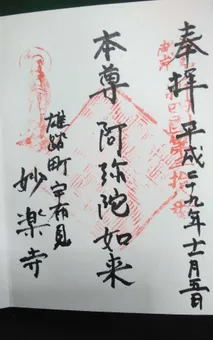 奉拝 平成二十九年十一月五日
本尊 阿弥陀如来
雄踏町宇布見
妙楽寺